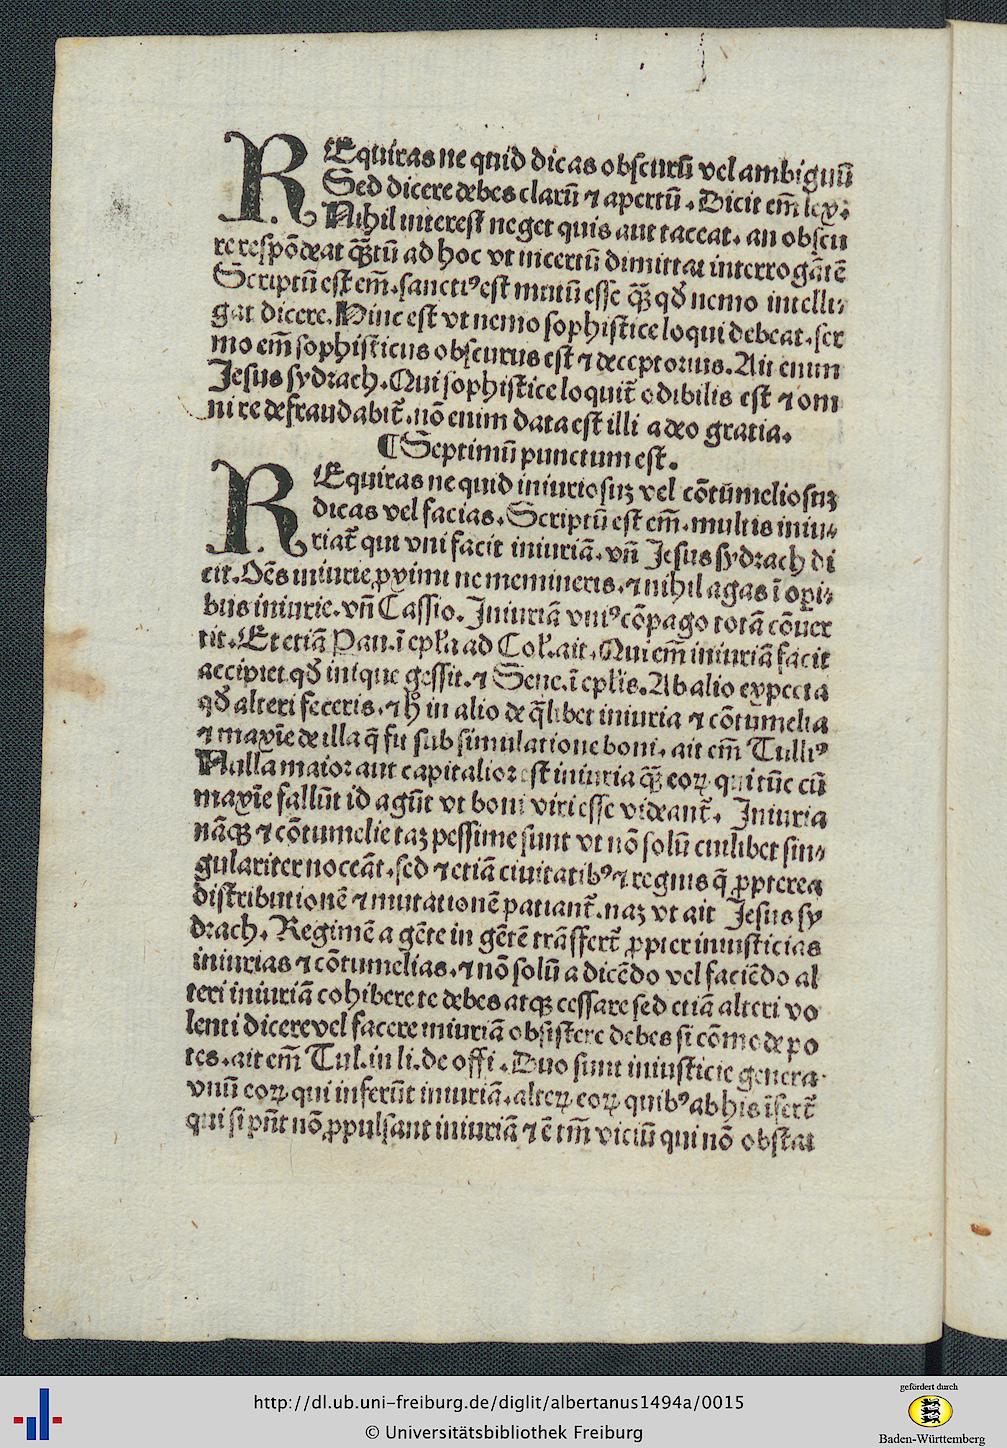 REquiras ne quid dicas obscurũ vel ambiguũ
Sed dicere debes clarũ ⁊ apertũ. Dicit em̃ lex.
Nihil interest neget quis aut taceat. an obscu
re respõdeat q̃ꝫtũ ad hoc vt incertũ dimittat interrogãtẽ
Scriptũ est em̃. sancti⁹ est mutũ esse q̃ꝫ qđ nemo intelli⸗
gat dicere. Hinc est vt nemo sophistice loqui debeat. ser
mo em̃ sophisticus obscurus est ⁊ deceptorius. Ait enim
Jesus sydrach. Qui sophistice loquit̃ odibilis est ⁊ om
ni re defraudabit̃. nõ enim data est illi a deo gratia.
¶ Septimũ punctum est.
REquiras ne quid iniuriosuꝫ vel cõtũmeliosuꝫ
dicas vel facias. Scriptũ est em̃. multis iniu⸗
riat̃ qui vni facit iniuriã. vñ Jesus sydrach di
cit. Oẽs iniurie ꝓximi ne memineris. ⁊ nihil agas ĩ oꝑi⸗
bus iniurie. vñ Cassio. Iniuriã vni⁹ cõpago totã cõuer
tit. Et etiã Pau. ĩ epľa ad Col. ait. Qui em̃ iniuriã facit
accipiet qđ inique gessit. ⁊ Sene. ĩ epľis. Ab alio expecta
qđ alteri feceris. ⁊ h̊ in alio de q̃libet iniuria ⁊ cõtumelia
⁊ maxĩe de illa q̃ fit sub simulatione boni. ait em̃ Tulli⁹
Nulla maior aut capitalior est iniuria q̃ꝫ eoꝝ qui tũc cũ
maxĩe fallũt id agũt vt boni viri esse videant̃. Iniuria
nãqꝫ ⁊ cõtumelie taꝫ pessime sunt vt nõ solũ cuilibet sin⸗
gulariter noceãt. sed ⁊ etiã ciuitatib⁹ ⁊ regnis q̃ ꝓpterea
distributionẽ ⁊ mutationẽ patiant̃. naꝫ vt ait Jesus sy
drach. Regimẽ a gẽte in gẽtẽ trãsfert̃ ꝓpter iniusticias
iniurias ⁊ cõtumelias. ⁊ nõ solũ a dicẽdo vel faciẽdo al
teri iniuriã cohibere te debes atqꝫ cessare sed etiã alteri vo
lenti dicere vel facere iniuriã obsistere debes si cõmode po
tes. ait em̃ Tul. in li. de offi. Duo sunt iniusticie genera
vnũ eoꝝ qui inferũt iniuriã. alteꝝ eoꝝ quib⁹ ab his ĩfert̃
qui si pñt nõ ꝓpulsant iniuriã ⁊ ẽ tm̃ viciũ qui nõ obstat
http://dl.ub.uni-freiburg.de/diglit/albertanus1494a/0015
© Universitätsbibliothek Freiburg
gefördert durch
Baden-Württemberg